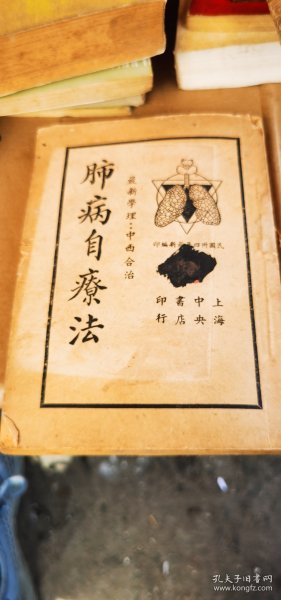 肺病自療法
最新學理：中西合治
民國卅四年新編印
上海
中央
書店
印行
孔夫子旧书网
www.kongfz.com